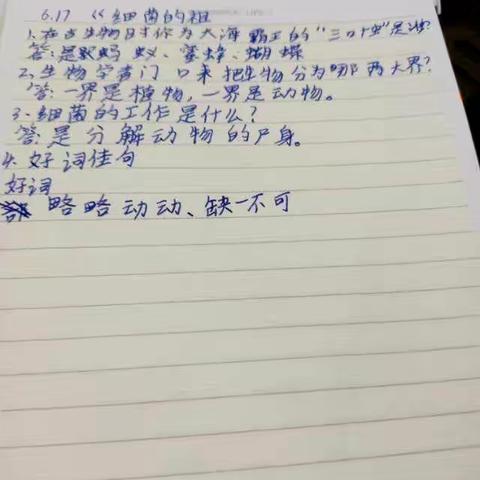 6.17 《细菌的祖
1.在古生物时 为大海霸王的"三 虫"是
答:是 蚂蚁、蜜蜂、蝴蝶
2.生物学者门 口来把生物分为哪两大界?
答:一界是植物,一界是动物。
3.细菌的工作是什么?
答:是分解动物的尸身。
4.好词佳句
好词
略略动动、缺一不可